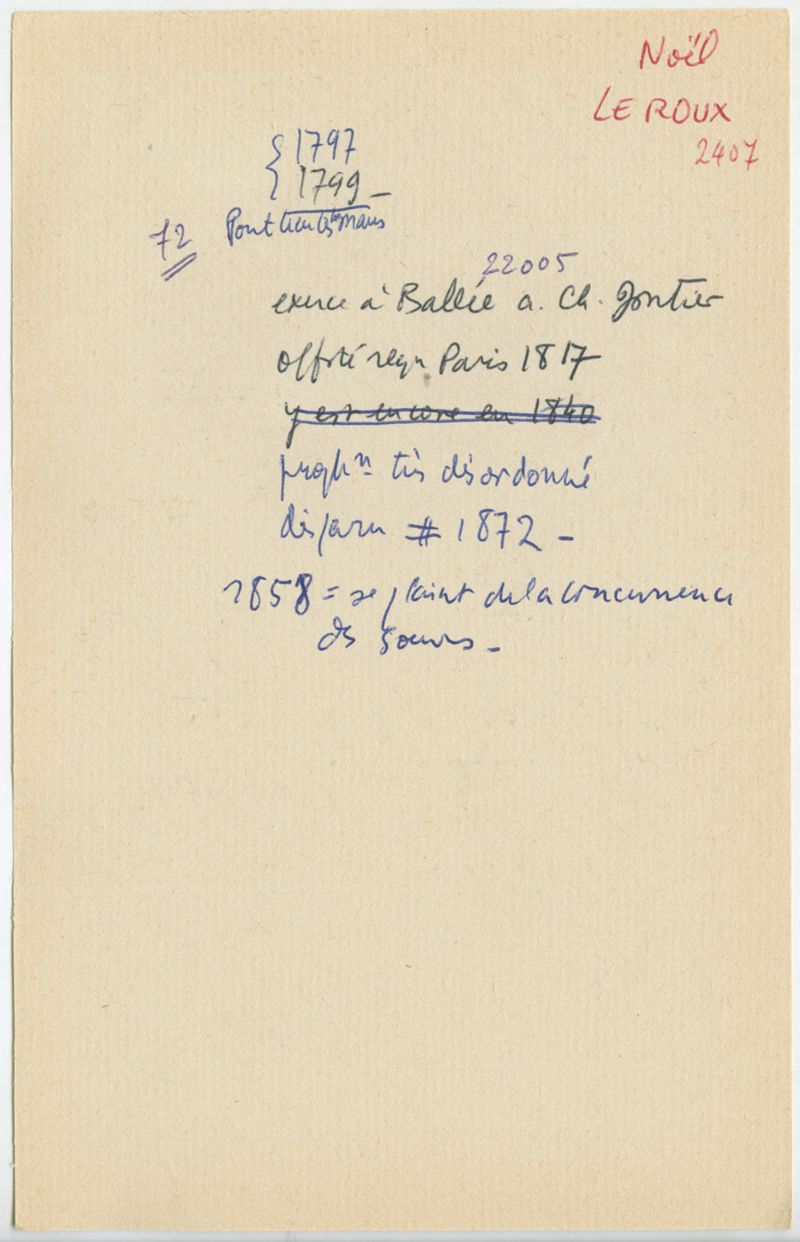 Noël
LE ROUX
2407
1797
1799 –
72 Pontlieu les Mans
22005
exerce à Ballée a. Ch. Jontier
off. té reçu Paris 1817
y est encore en 1840
très désordonné
disparu # 1872 –
1858 = se plaint de la concurrence
des soeurs –